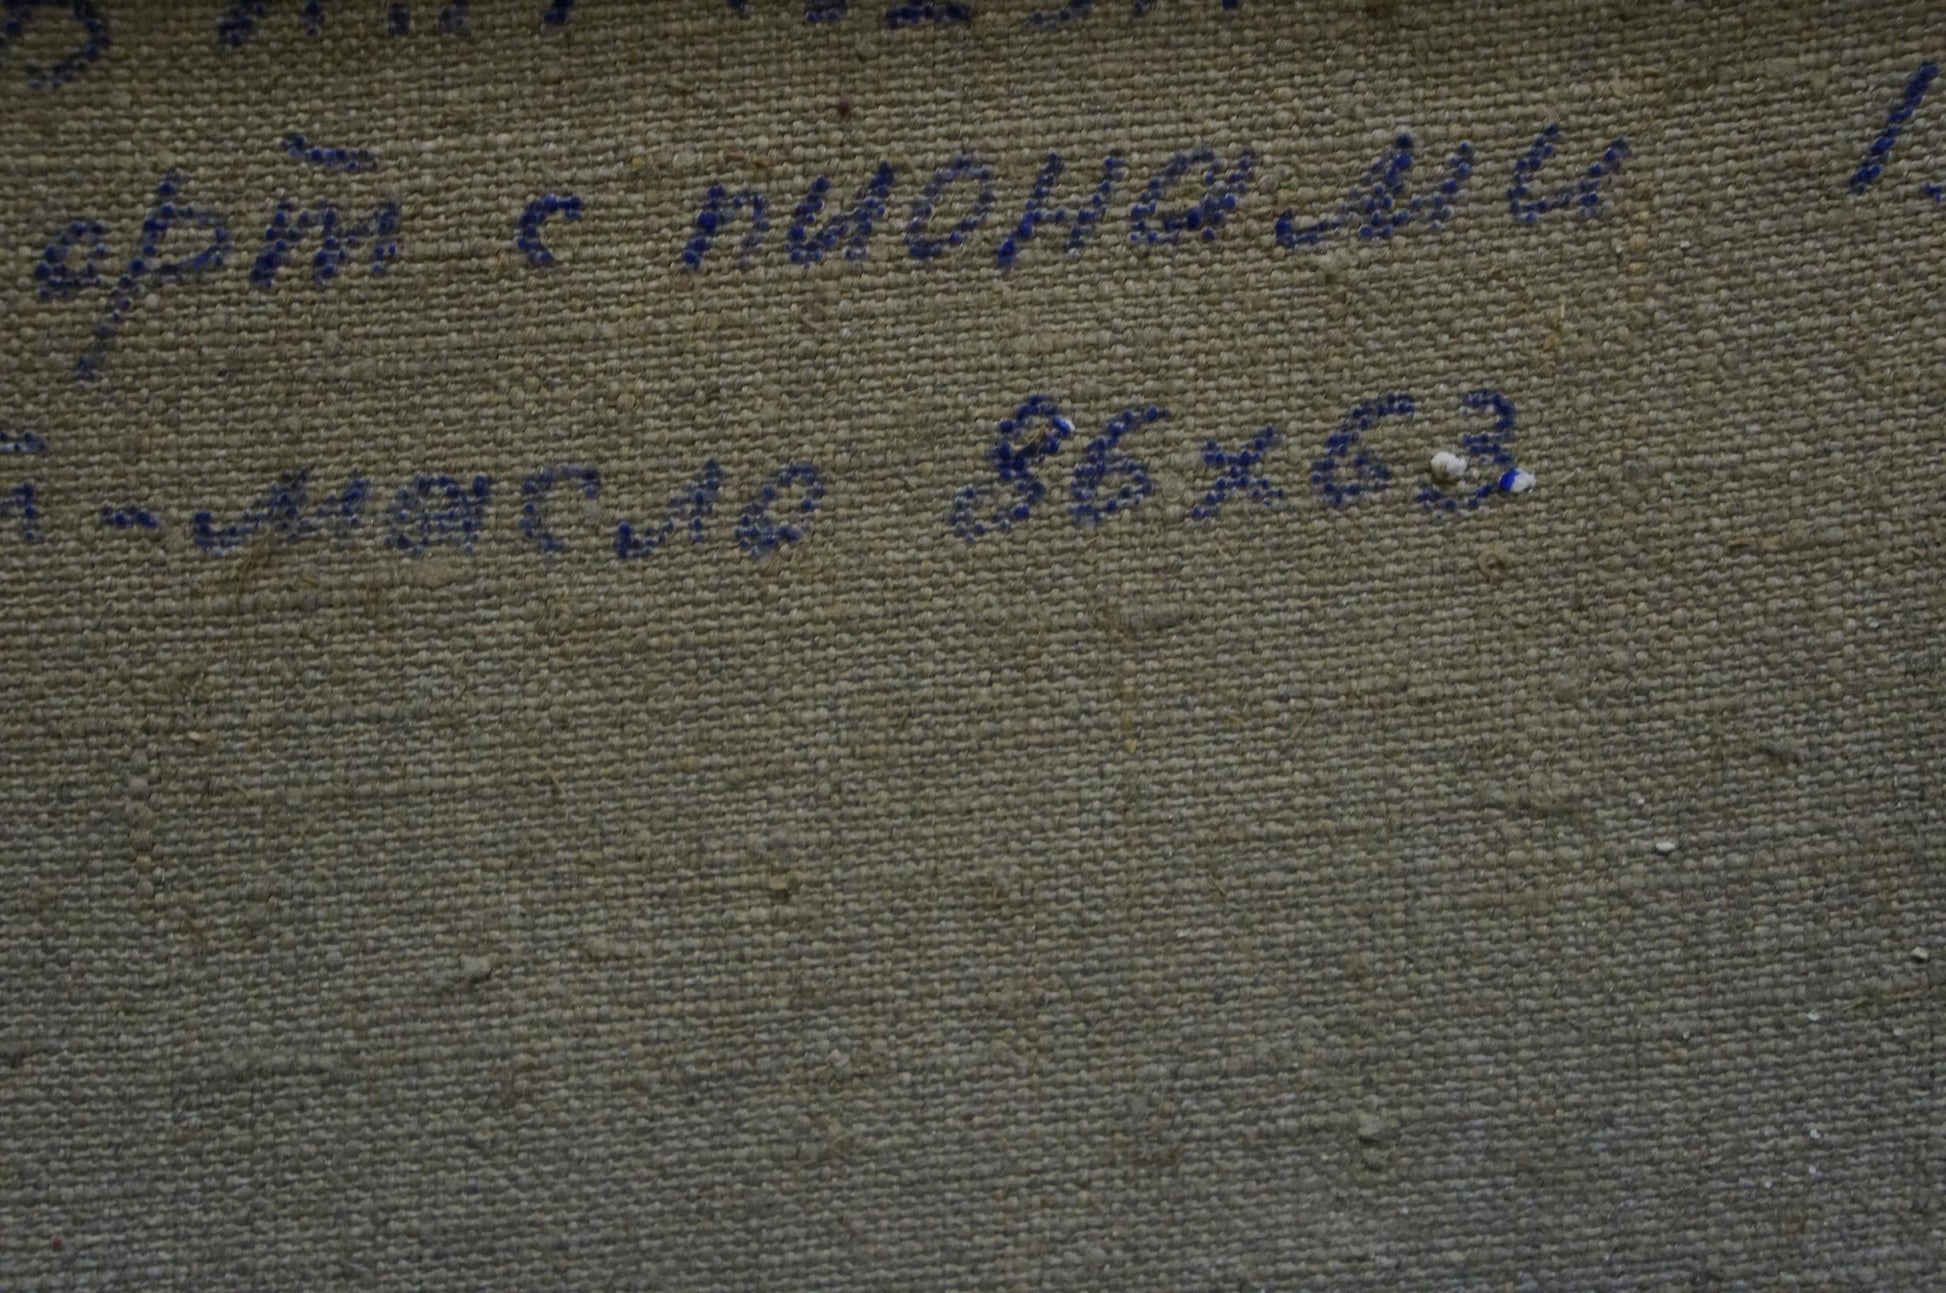 арт с пионами 1
- масло 86х63